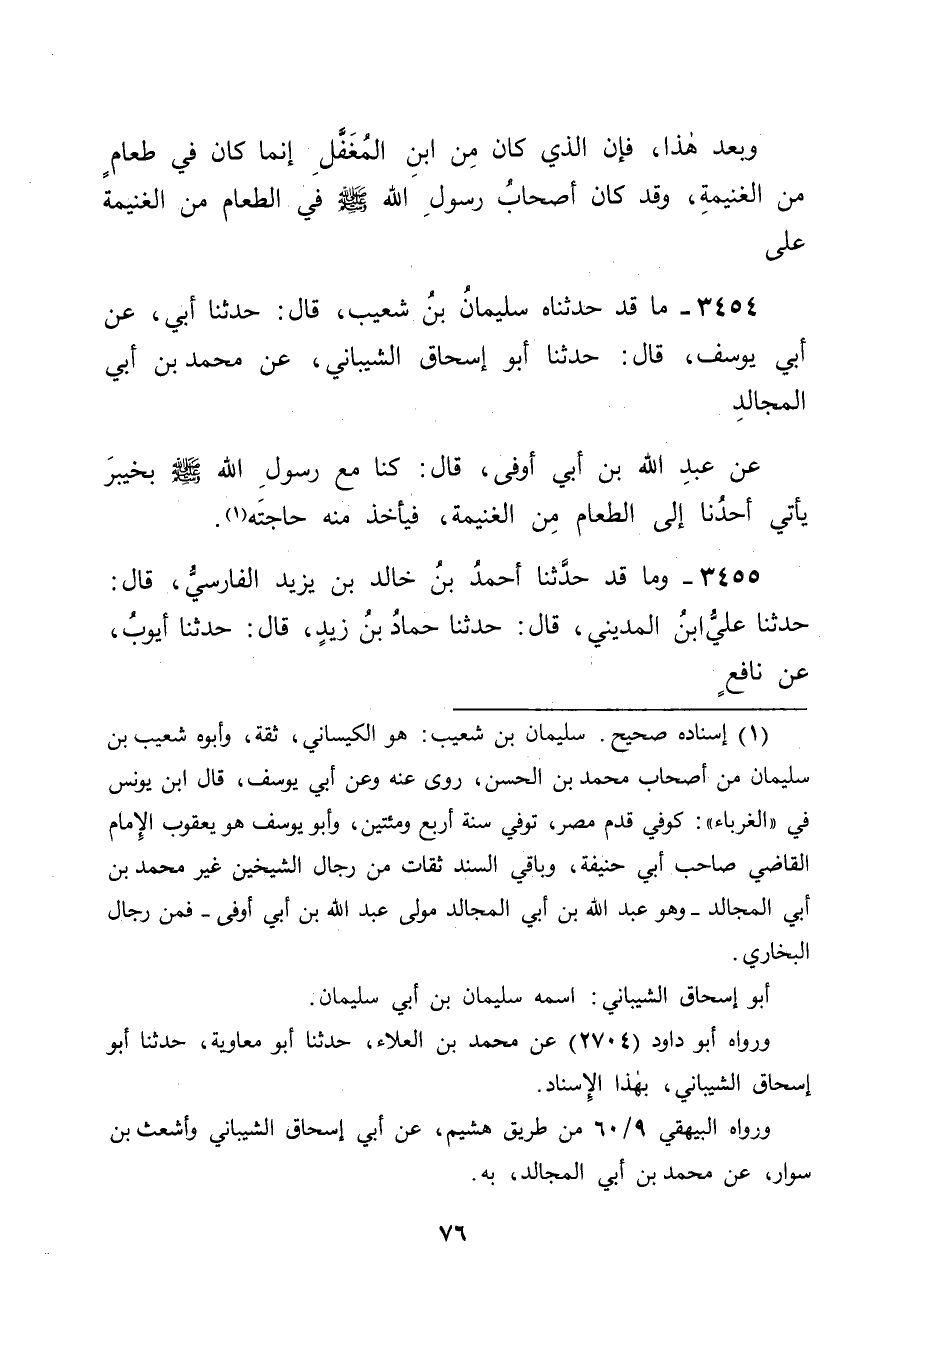 وبعد هٰذا، فإن الذي كان مِن ابنِ المُغَفَّلِ إنما كان في طعامٍ
من الغنيمةِ، وقد كان أصحابُ رسولِ الله ﷺ في الطعام من الغنيمة
على
٣٤٥٤ ـ ما قد حدثناه سليمانُ بنُ شعيب، قال: حدثنا أبي، عن
أبي يوسف، قال: حدثنا أبو إسحاق الشيباني، عن محمد بن أبي
المجالدِ
عن عبدِ الله بن أبي أوفى، قال: كنا مع رسولِ الله ﷺ بخيبرَ
يأتي أحدُنا إلى الطعام مِن الغنيمة، فيأخذ منه حاجتَه(١).
٣٤٥٥ ـ وما قد حدَّثنا أحمدُ بنُ خالد بن يزيد الفارسيُّ، قال:
حدثنا عليُّ ابنُ المديني، قال: حدثنا حمادُ بنُ زيدٍ، قال: حدثنا أيوبُ،
عن نافعٍ
(١) إسناده صحيح. سليمان بن شعيب: هو الكيساني، ثقة، وأبوه شعيب بن
سليمان من أصحاب محمد بن الحسن، روى عنه وعن أبي يوسف، قال ابن يونس
في «الغرباء»: كوفي قدم مصر، توفي سنة أربع ومئتين، وأبو يوسف هو يعقوب الإمام
القاضي صاحب أبي حنيفة، وباقي السند ثقات من رجال الشيخين غير محمد بن
أبي المجالد ـ وهو عبد الله بن أبي المجالد مولى عبد الله بن أبي أوفى ـ فمن رجال
البخاري.
أبو إسحاق الشيباني: اسمه سليمان بن أبي سليمان.
ورواه أبو داود (٢٧٠٤) عن محمد بن العلاء، حدثنا أبو معاوية، حدثنا أبو
إسحاق الشيباني، بهٰذا الإسناد.
ورواه البيهقي ٦٠/٩ من طريق هشيم، عن أبي إسحاق الشيباني وأشعث بن
سوار، عن محمد بن أبي المجالد، به.
٧٦